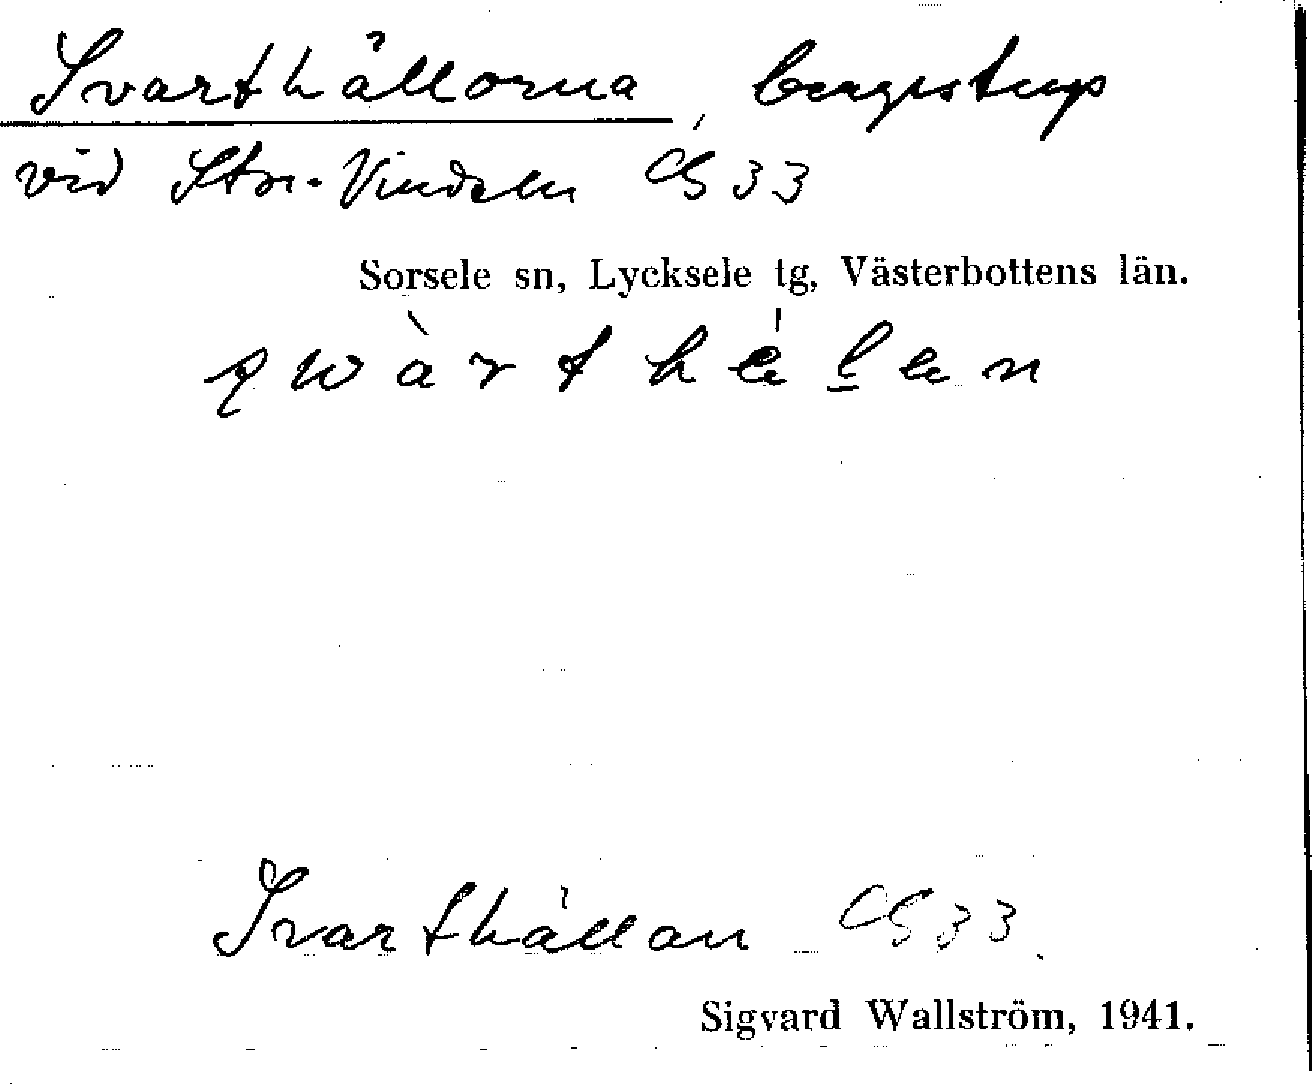 Svarthällorna, bergstup
vid Stor-Vindeln CG 33
Sorsele sn, Lycksele tg, Västerbottens län.
Svarthällan CG 33.
Sigvard Wallström, 1941.